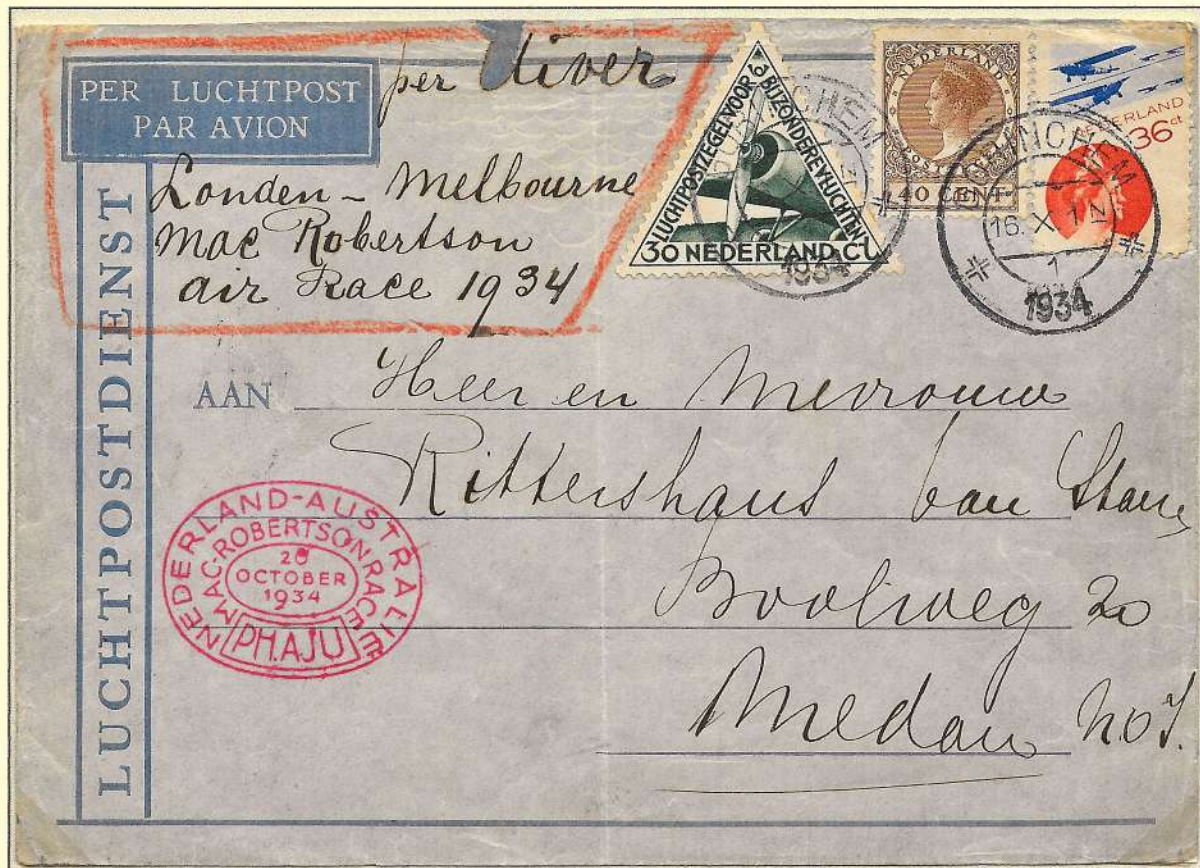 PER LUCHTPOST
PAR AVION
per Uiver
Londen - Melbourne
Mac Robertson
air Race 1934
LUCHTPOSTDIENST
LUCHTPOSTZEGEL VOOR BIJZONDERE VLUCHTEN
30 NEDERLAND Ct
NEDERLAND
40 CENT
NEDERLAND
36 ct
16.X
1934
1934
AAN Heer en Mevrouw
Rittershaus van
20
Medan N.O.I.
NEDERLAND-AUSTRALIE
MAC-ROBERTSON RACE
20
OCTOBER
1934
PH.AJU